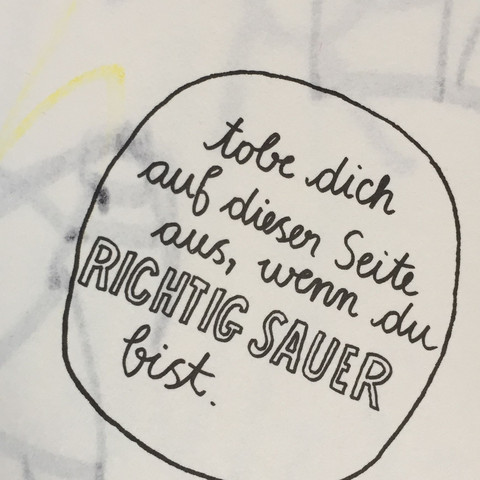 tobe dich
auf dieser Seite
aus, wenn du
RICHTIG SAUER
bist.